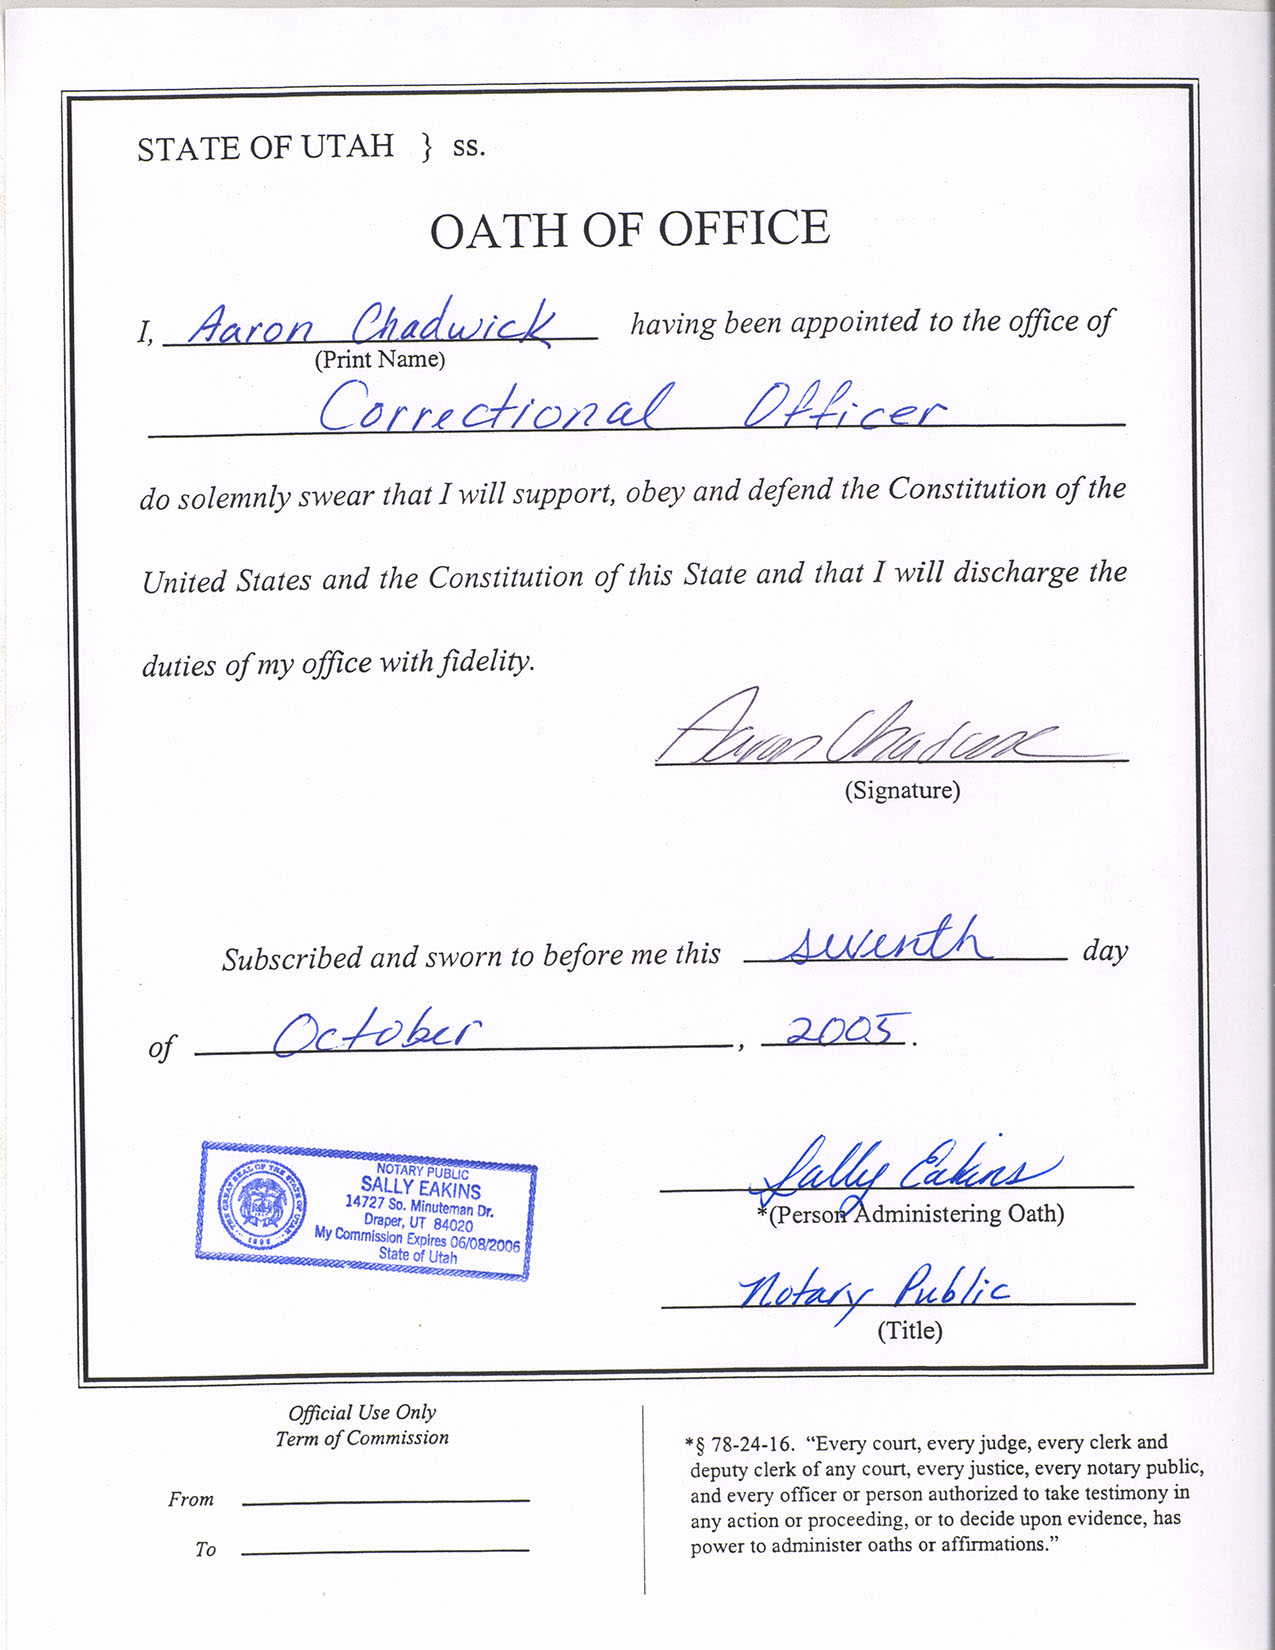 STATE OF UTAH } ss.
OATH OF OFFICE
I, Aaron Chadwick having been appointed to the office of
(Print Name)
Correctional Officer
do solemnly swear that I will support, obey and defend the Constitution of the
United States and the Constitution of this State and that I will discharge the
duties of my office with fidelity.
Aaron Chadwick
(Signature)
Subscribed and sworn to before me this seventh day
of October, 2005.
NOTARY PUBLIC
SALLY EAKINS
14727 So. Minuteman Dr.
Draper, UT 84020
My Commission Expires 06/08/2006
State of Utah
THE GREAT SEAL OF THE STATE OF UTAH
1896
Sally Eakins
*(Person Administering Oath)
Notary Public
(Title)
Official Use Only
Term of Commission
From
To
*§ 78-24-16. “Every court, every judge, every clerk and
deputy clerk of any court, every justice, every notary public,
and every officer or person authorized to take testimony in
any action or proceeding, or to decide upon evidence, has
power to administer oaths or affirmations.”